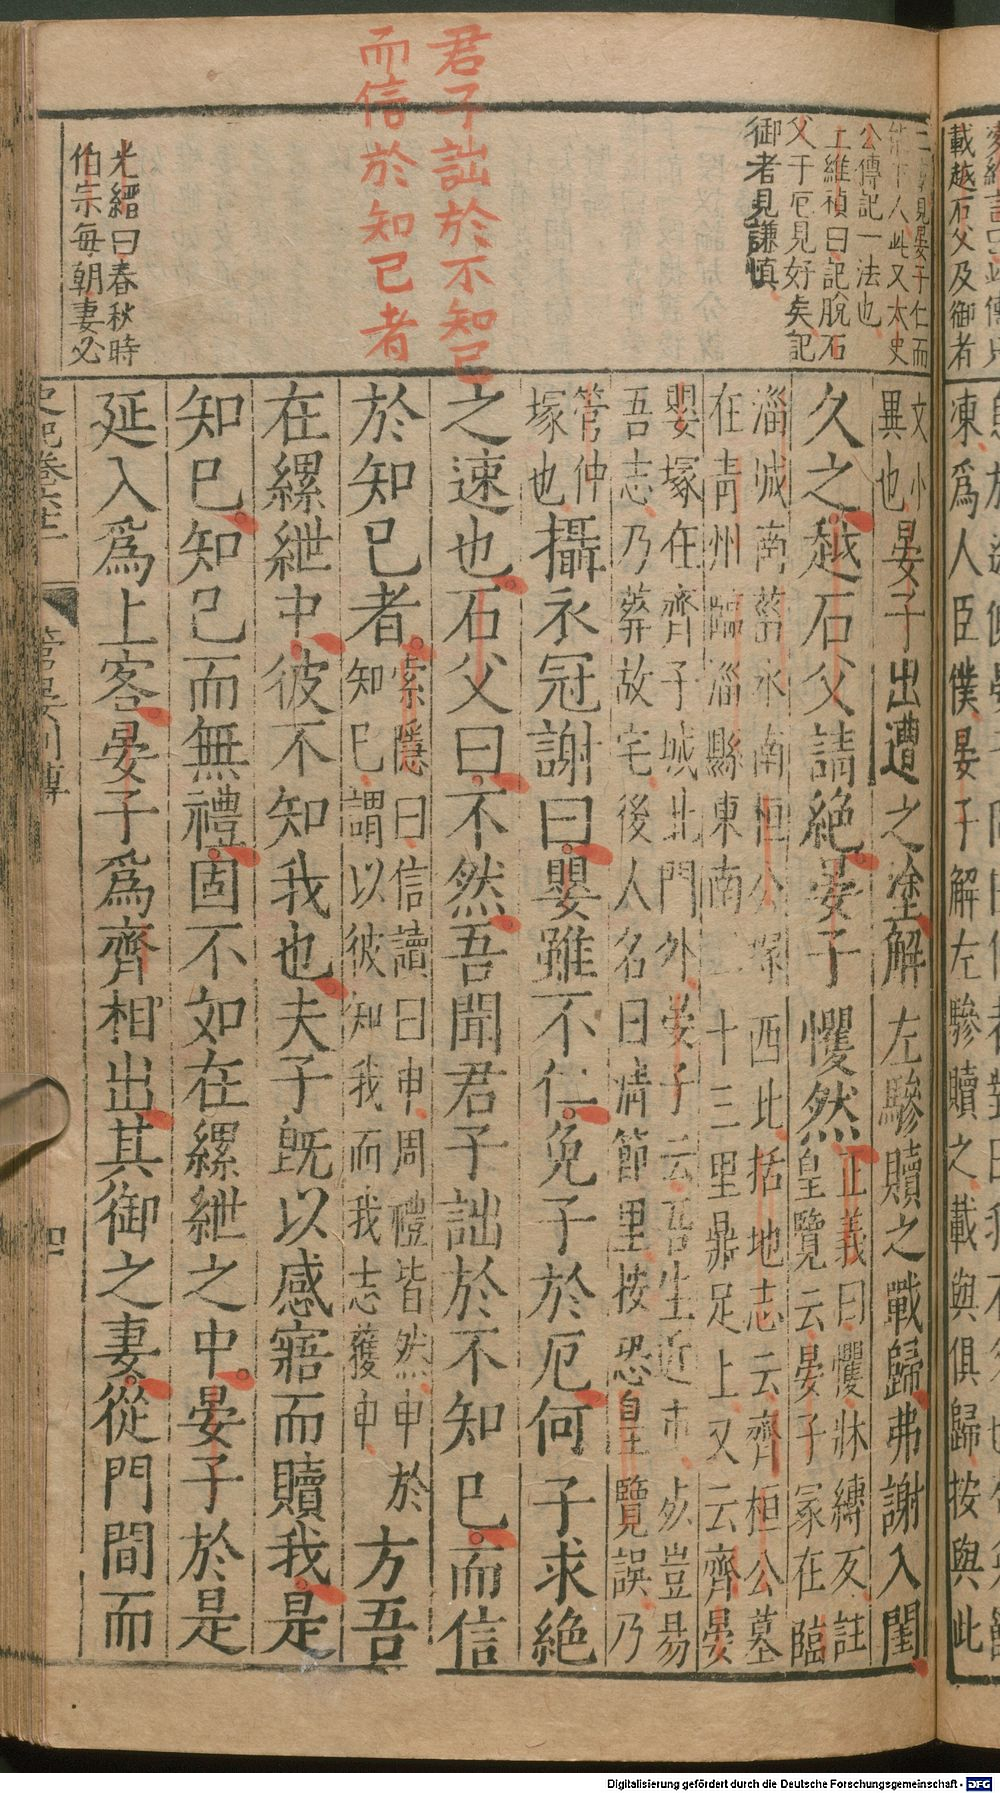 君子詘於不知己
而信於知己者
載越石父及御者
公傳記一法也
王維禎曰記脫石
父于厄見好矣記
御者見謙愼
光縉曰春秋時
伯宗每朝妻必
凍爲人臣僕晏子解左驂贖之載與俱歸按與此
文小
異也
晏子出遭之塗解左驂贖之載歸弗謝入閨
久之越石父請絕晏子戄然
正義曰戄牀縛反註
皇覽云晏子冢在臨
淄城南菑水南恒公塚西北括地志云齊桓公墓
在青州臨淄縣東南二十三里鼎足上又云齊晏
嬰塚在齊子城北門外晏子云吾生近市死豈易
吾志乃葬故宅後人名曰清節里按恐皇覽誤乃
管仲
塚也
攝衣冠謝曰嬰雖不仁免子於厄何子求絕
之速也石父曰不然吾聞君子詘於不知已而信
於知已者
索隱曰信讀曰申周禮皆然申於
知已謂以彼知我而我志獲申
方吾
在縲紲中彼不知我也夫子旣以感寤而贖我是
知已知己而無禮固不如在縲紲之中晏子於是
延入爲上客晏子爲齊相出其御之妻從門間而
管晏列傳
四
Digitalisierung gefördert durch die Deutsche Forschungsgemeinschaft - DFG